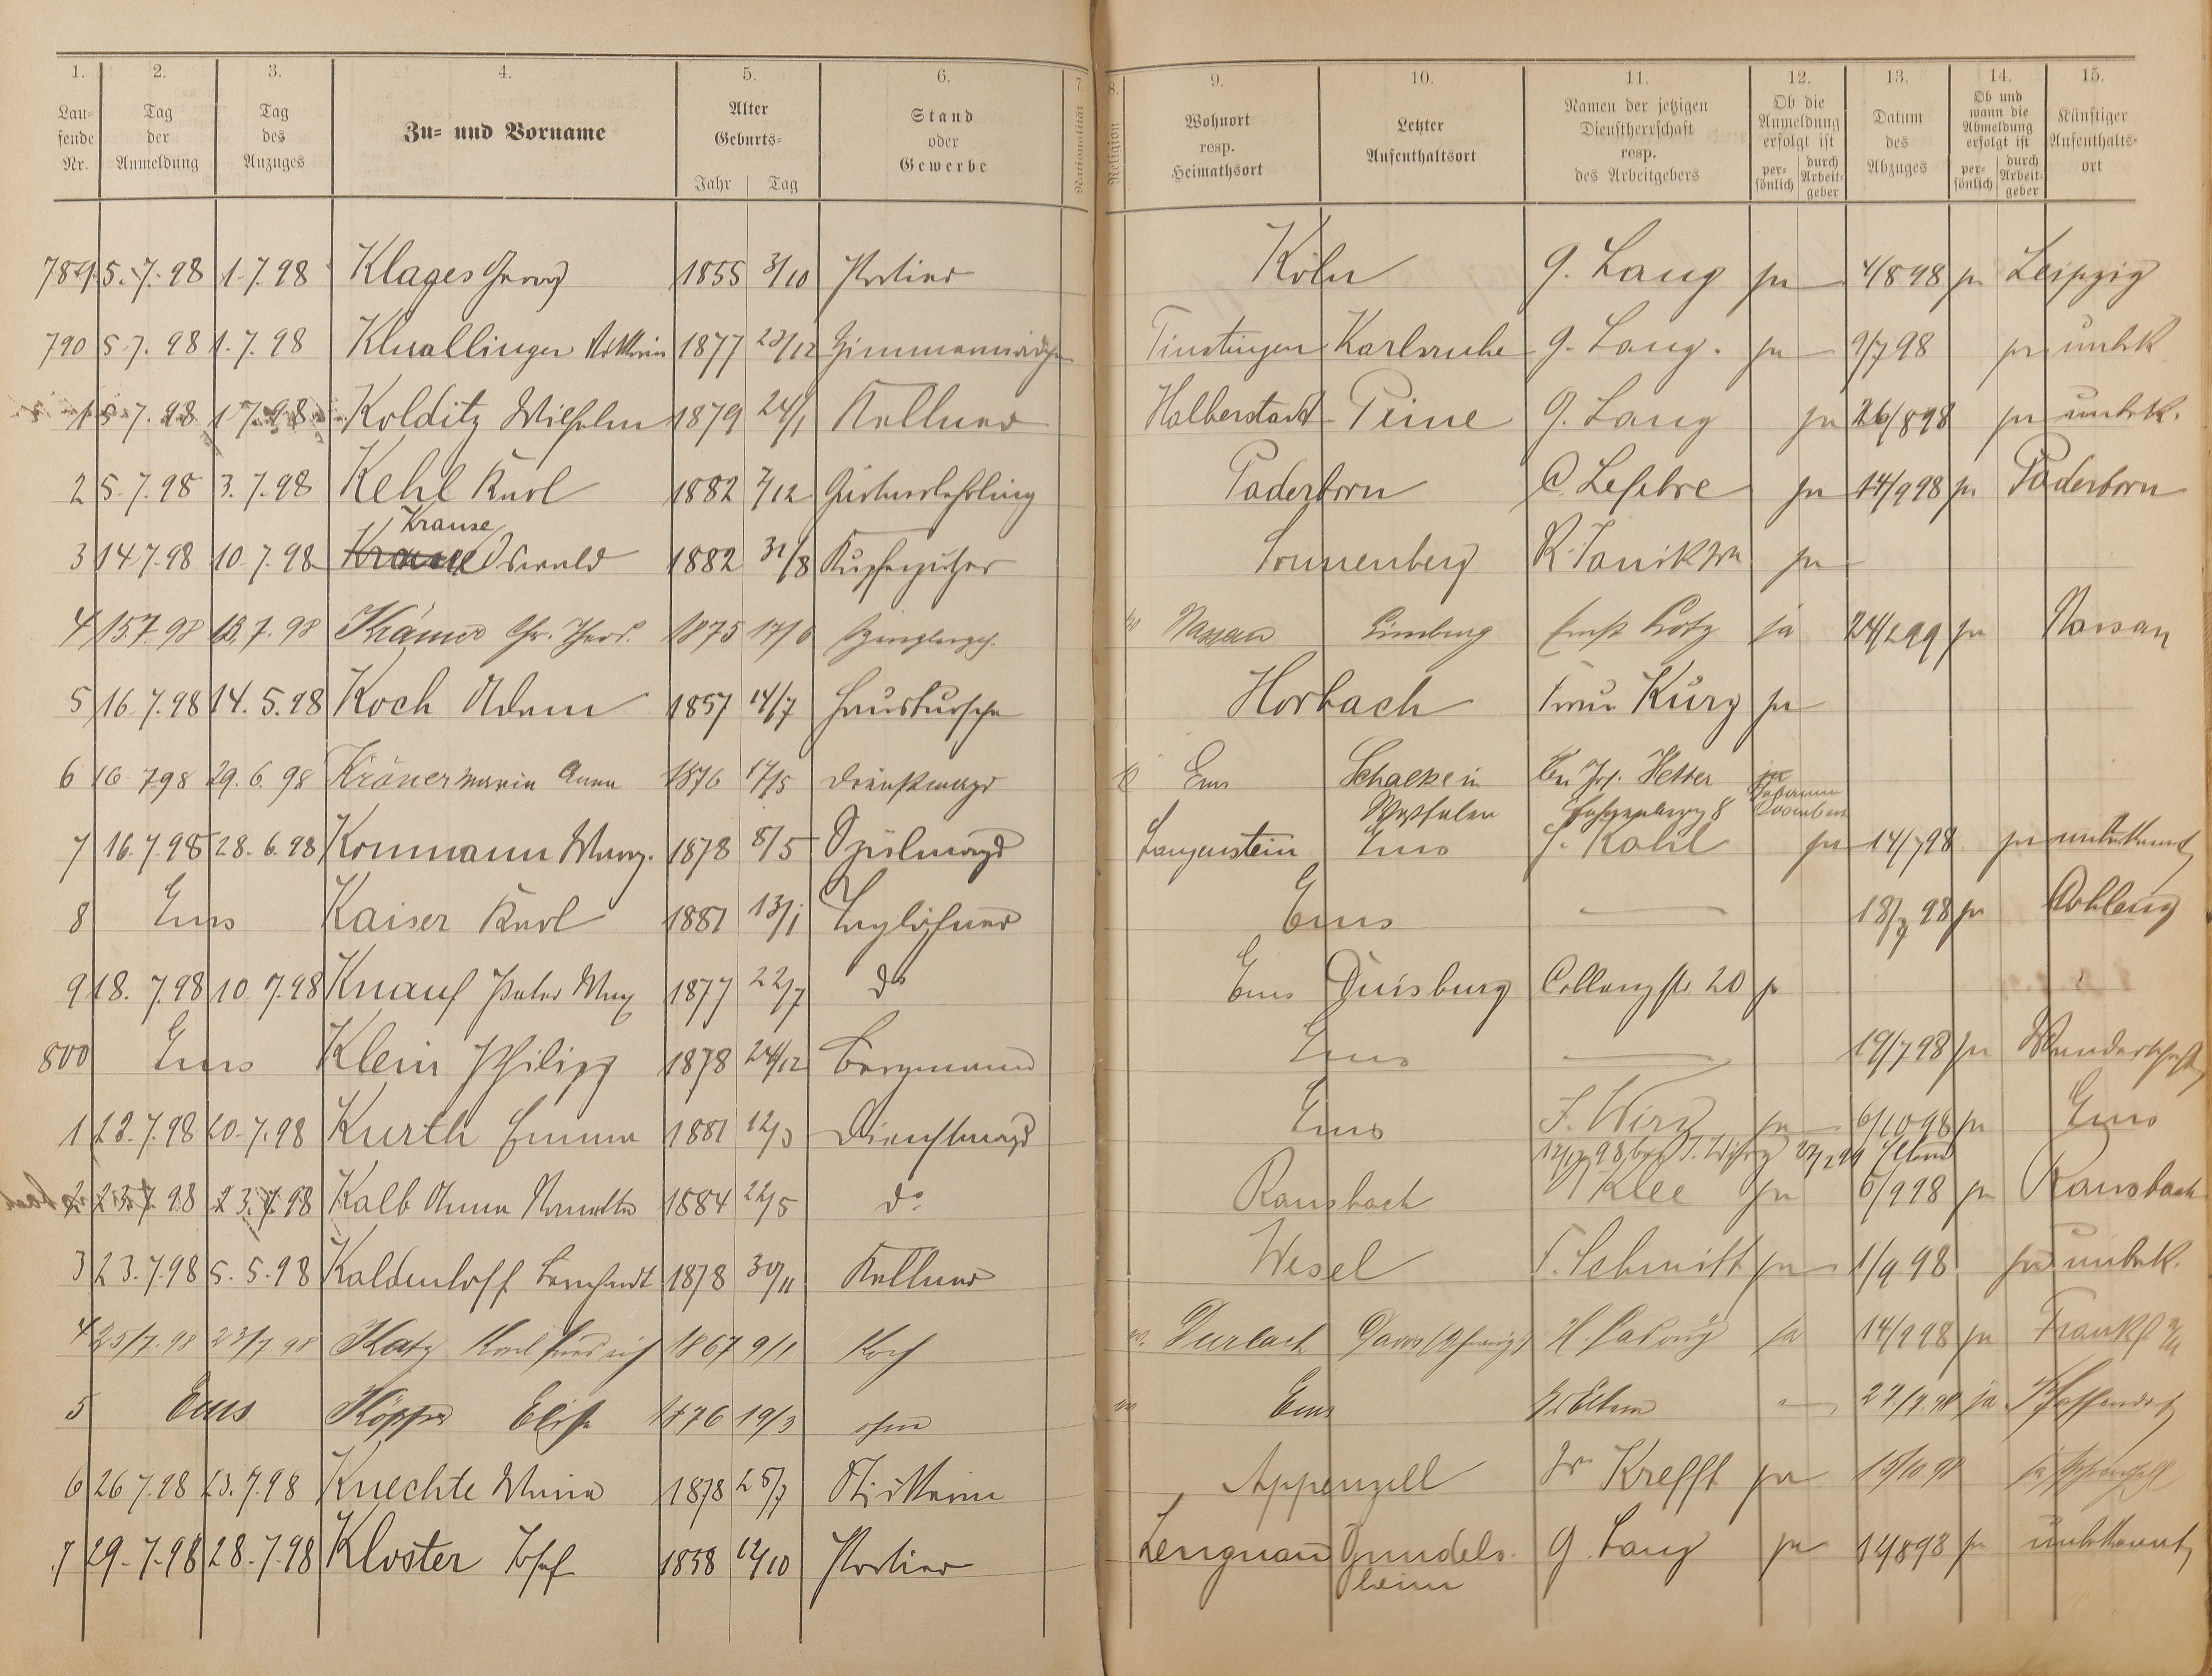 1. 2. 3. 4. 5. 6. 7. 8. 9. 10. 11. 12. 13. 14. 15.
Lau-
fende
Nr.
Tag
der
Anmeldung
Tag
des
Anzuges
Zu- und Vorname
Alter
Geburts-
Jahr Tag
Stand
oder
Gewerbe
Nationalität
Religion
Wohnort
resp.
Heimathsort
Letzter
Aufenthaltsort
Namen der jetzigen
Dienstherrschaft
resp.
des Arbeitgebers
Ob die
Anmeldung
erfolgt ist
per-
sönlich
durch
Arbeit-
geber
Datum
des
Abzuges
Ob und
wann die
Abmeldung
erfolgt ist
per-
sönlich
durch
Arbeit-
geber
Künftiger
Aufenthalts-
ort
789. 5.7.98 1.7.98 Klages Georg 1855 3/10 Portier Köln G. Lang ja 4/8 98 ja Leipzig
790 5.7.98 1.7.98 1877 23/12 Zimmermädchen Karlsruhe G. Lang. ja 9/7 98 ja unbek
1 5.7.98 1.7.98 Kolditz Wilhelm 1879 24/1 Kellner Halberstadt Peine G. Lang ja 26/8 98 ja unbek.
2 5.7.98 3.7.98 Kehl Karl 1882 7/12 Gärtnerlehrling Paderborn C. Lefebre ja 14/9 98 ja Paderborn
Krause
3 14 7.98 10.7.98 Oswald 1882 31/8 Kupferputzer Sonnenberg ja
4 15 7.98 13.7.98 Krämer Chr. Theod. 1875 17/6 Nassau Limburg Ernst Lotz ja 24/2 99 ja Nassau
5 16.7.98 14.5.98 Koch Adam 1857 14/7 Hausbursche Horbach Frau Kurz ja
6 16 7 98 29.6.98 Kröner Maria Anna 1876 17/5 Dienstmagd Ems Schalke in Jos. Hetter
Westfalen
7 16.7.98 28.6.98 Kornmann Marg. 1878 8/5 Spülmagd Langenstein Ems J. Kahl ja 14/7 98 ja unbekannt
8 Ems Kaiser Karl 1881 13/1 Taglöhner Ems 18/7 98 ja Coblenz
9 18.7.98 10.7.98 Knauf Peter Max 1877 22/7 do Ems Duisburg Coblenzstr. 20 ja
800 Ems Klein Philipp 1878 24/12 Bergmann Ems 19/7 98 ja Wanderschaft
1 22.7.98 20.7.98 Kurth Emma 1881 12/3 Dienstmagd Ems J. Wirz ja 6/10 98 ja Ems
2 23.7.98 23.7.98 Kalb Anna 1884 22/5 do Ransbach Klee ja 6/9 98 ja Ransbach
3 23.7.98 5.5.98 Kaldenhoff Bernhardt 1878 30/11 Kellner Wesel F. Schmitt ja 1/9 98 ja unbek.
4 25/7.98 23/7 98 Katz Karl Friedrich 1867 9/1 Koch Durlach Davos (Schweiz) ja 14/9 98 ja Frankf a/M
5 Ems Elise 1876 19/3 ohne Ems Eltern 27/7.98 ja Pfaffendorf
6 26 7.98 23.7.98 Knechte Mina 1878 25/7 Appenzell Dr Krefft ja 15/10 98 ja
7 29.7.98 28.7.98 Kloster Josef 1858 12/10 Portier Lengnau Gundels-
heim
G. Lang ja 14/8 98 ja unbekannt